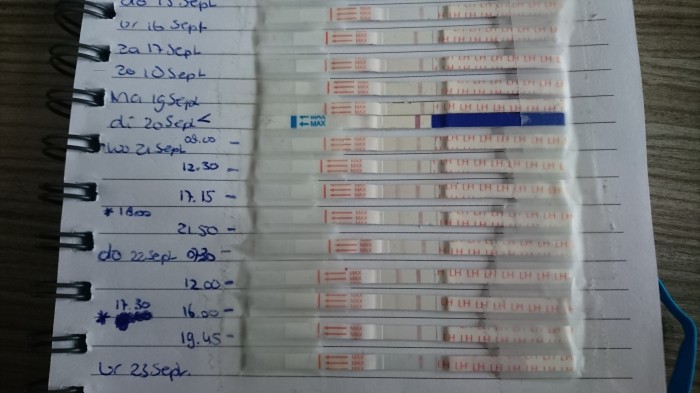 do 15 Sept
vr 16 Sept
za 17 Sept
zo 18 Sept
Ma 19 Sept
di 20 Sept <
MAX
wo 21 Sept 09.00 -
12.30 -
17.15 -
* 18.00
21.50 -
do 22 Sept 07.30 -
12.00 -
17.30
* 16.00 -
19.45 -
vr 23 Sept.
MAX
LH LH LH LH LH LH